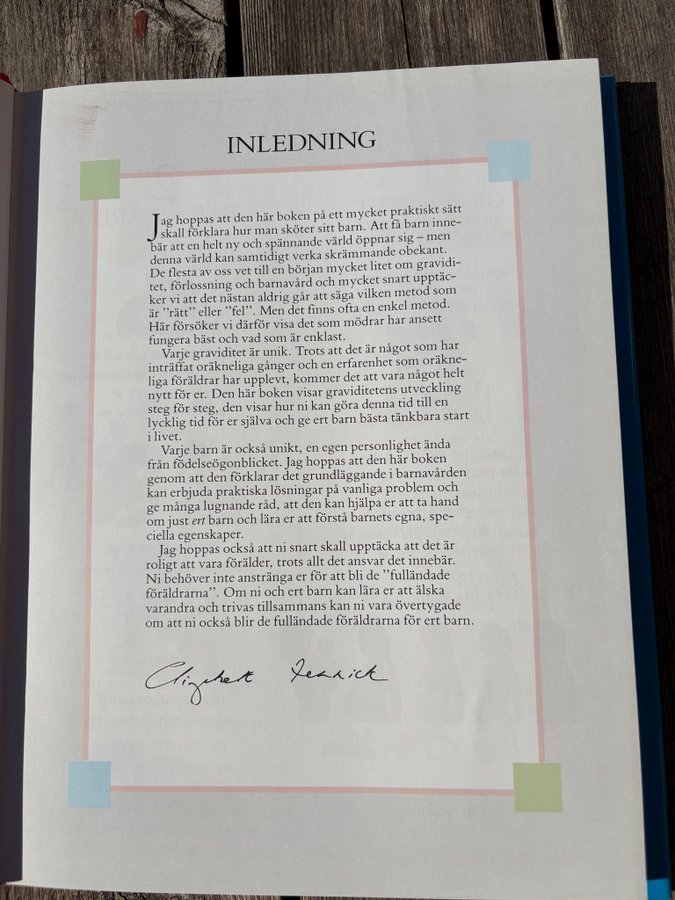 INLEDNING
Jag hoppas att den här boken på ett mycket praktiskt sätt
skall förklara hur man sköter sitt barn. Att få barn inne-
bär att en helt ny och spännande värld öppnar sig – men
denna värld kan samtidigt verka skrämmande obekant.
De flesta av oss vet till en början mycket litet om gravidi-
tet, förlossning och barnavård och mycket snart upptäc-
ker vi att det nästan aldrig går att säga vilken metod som
är ”rätt” eller ”fel”. Men det finns ofta en enkel metod.
Här försöker vi därför visa det som mödrar har ansett
fungera bäst och vad som är enklast.
Varje graviditet är unik. Trots att det är något som har
inträffat oräkneliga gånger och en erfarenhet som oräkne-
liga föräldrar har upplevt, kommer det att vara något helt
nytt för er. Den här boken visar graviditetens utveckling
steg för steg, den visar hur ni kan göra denna tid till en
lycklig tid för er själva och ge ert barn bästa tänkbara start
i livet.
Varje barn är också unikt, en egen personlighet ända
från födelseögonblicket. Jag hoppas att den här boken
genom att den förklarar det grundläggande i barnavården
kan erbjuda praktiska lösningar på vanliga problem och
ge många lugnande råd, att den kan hjälpa er att ta hand
om just ert barn och lära er att förstå barnets egna, spe-
ciella egenskaper.
Jag hoppas också att ni snart skall upptäcka att det är
roligt att vara förälder, trots allt det ansvar det innebär.
Ni behöver inte anstränga er för att bli de ”fulländade
föräldrarna”. Om ni och ert barn kan lära er att älska
varandra och trivas tillsammans kan ni vara övertygade
om att ni också blir de fulländade föräldrarna för ert barn.
Elizabeth Fenwick